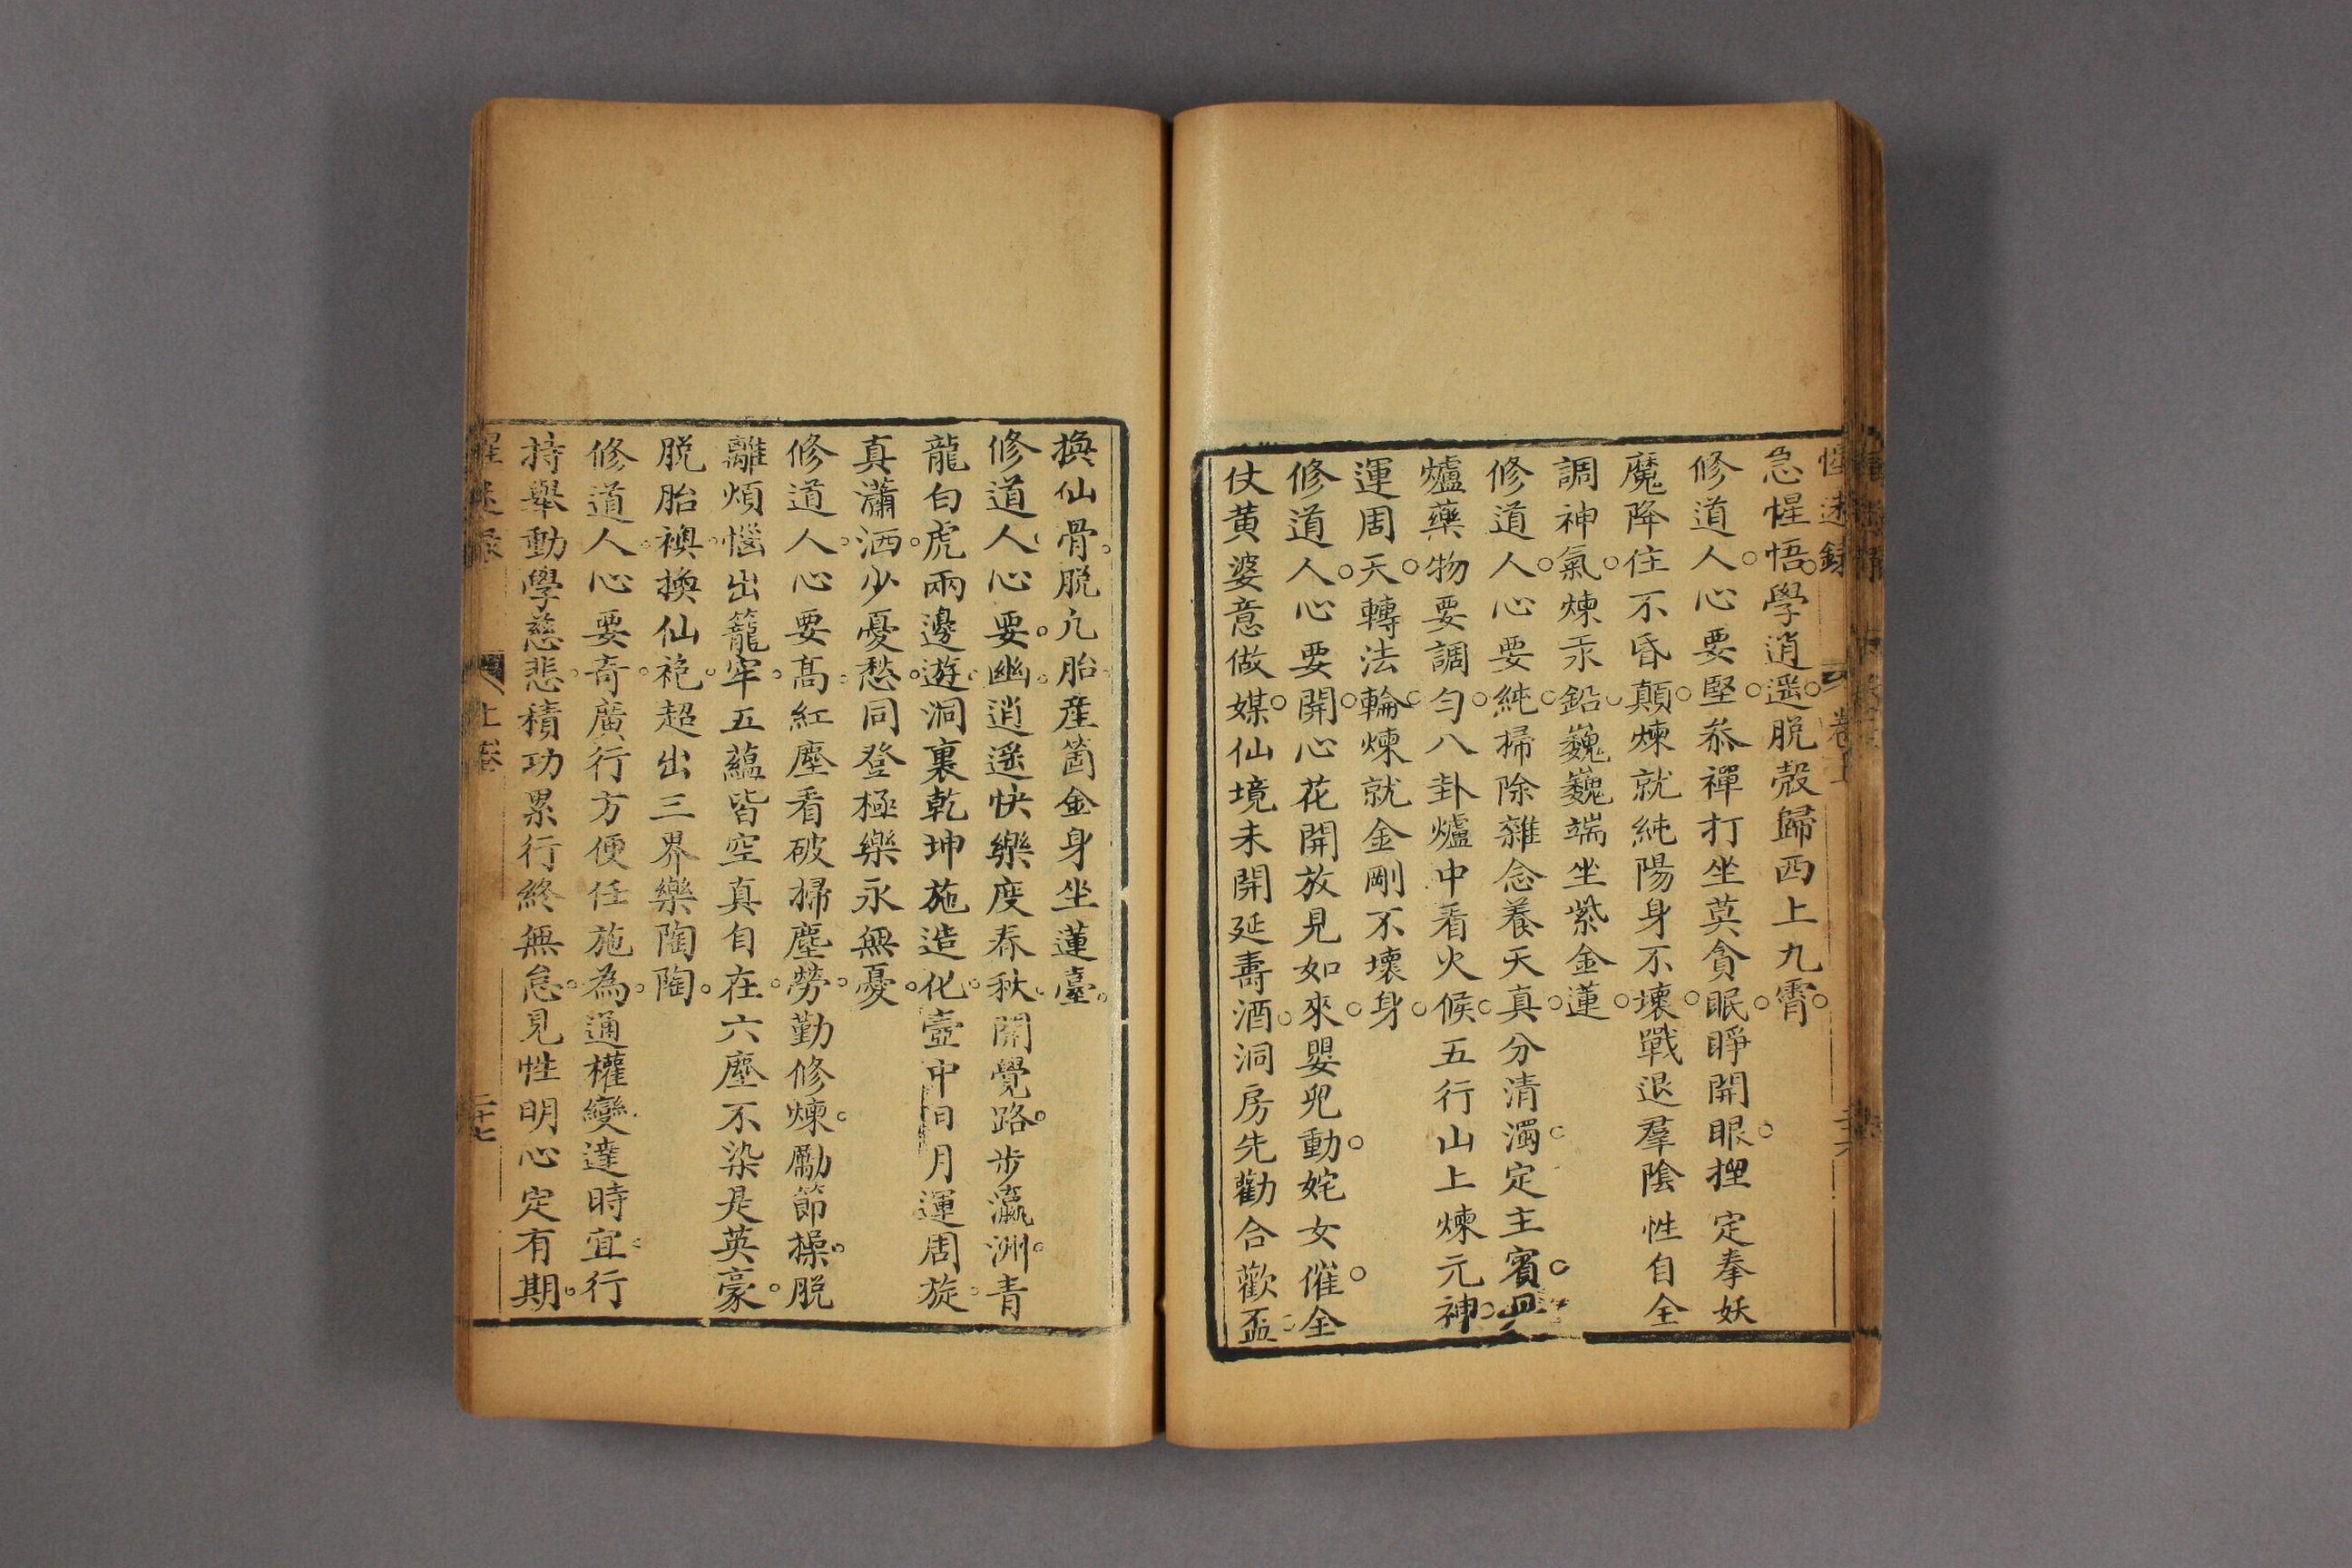 惺迷録 卷上 二十六
急惺悟。學逍遥。脱殻歸西上九霄。
修道人。心要堅。叅禪打坐莫貪眠。睜開眼。揑定拳。妖
魔降住不昏顛。煉就純陽身不壞。戰退羣陰性自全
調神氣。煉汞鉛。巍巍端坐紫金蓮。
修道人。心要純。掃除雜念養天真。分清濁。定主賓。
爐藥物要調勻。八卦爐中看火候。五行山上煉元神。
運周天。轉法輪。煉就金剛不壞身。
修道人。心要開。心花開放見如來。嬰兒動。姹女催。全
仗黄婆意做媒。仙境未開延壽酒。洞房先勸合歡盃。
換仙骨。脱凢胎。産箇金身坐蓮臺。
修道人。心要幽。逍遥快樂度春秋。開覺路。步瀛洲。青
龍白虎兩邊遊。洞裏乾坤施造化。壺中日月運周旋。
真瀟洒。少憂愁。同登極樂永無憂。
修道人。心要高。紅塵看破掃塵勞。勤修煉。勵節操。脱
離煩惱出籠牢。五藴皆空真自在。六塵不染是英豪。
脱胎襖。換仙袍。超出三界樂陶陶。
修道人。心要奇。廣行方便任施為。通權變。達時宜。行
持舉動學慈悲。積功累行終無怠。見性明心定有期。
惺迷录 上卷 二十七